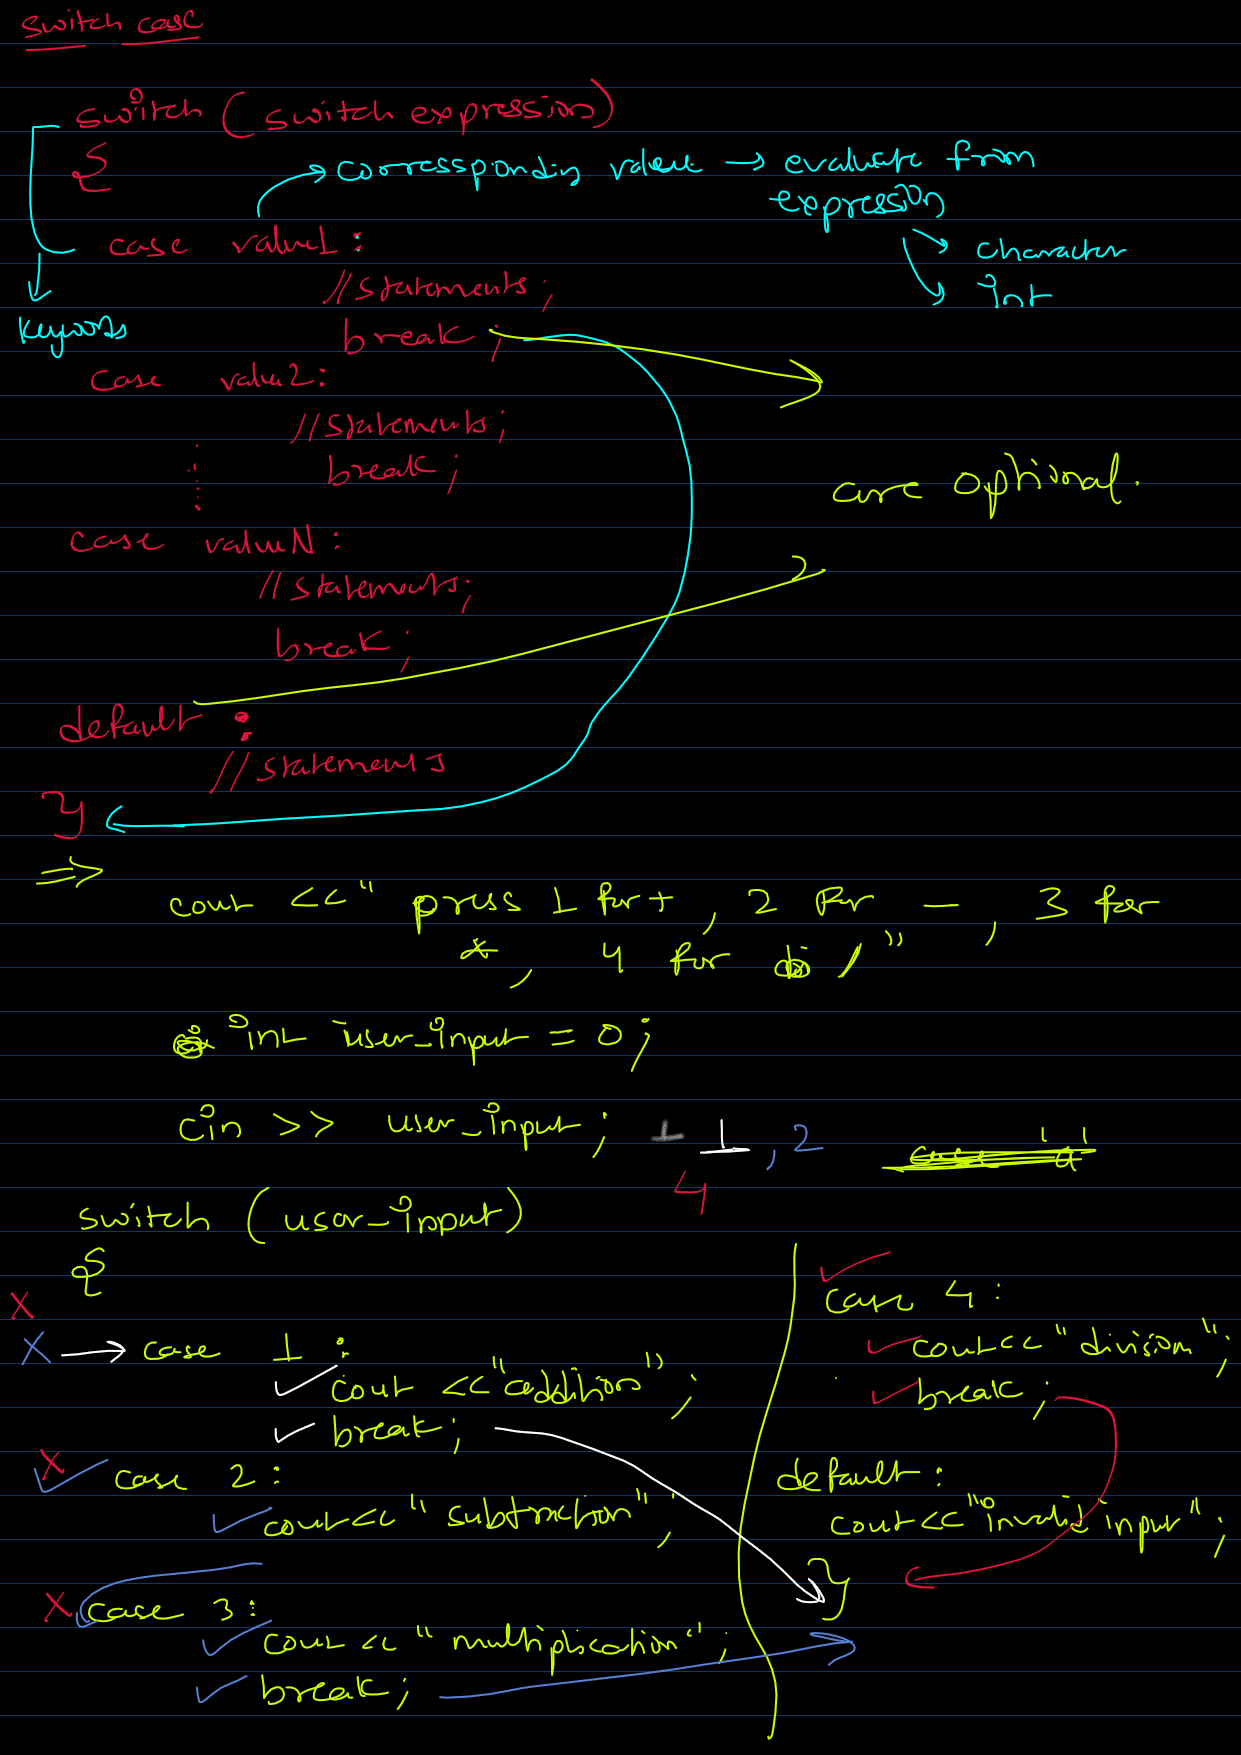 switch case
switch (switch expression)
{
corressponding value → evaluate from
expression
character
int
case value1:
//statements;
break;
keywords
case value2:
//statements;
break;
case valueN:
//statements;
break;
are optional.
default :
//statements
}
⇒
cout << " press 1 for + , 2 for – , 3 for
* , 4 for / "
int user_input = 0;
cin >> user_input; 1 , 2
4
switch (user_input)
{
case 1 :
cout << "addition";
break;
case 2 :
cout << " subtraction";
case 3 :
cout << " multiplication";
break;
case 4 :
cout << " division";
break;
default :
cout << "invalid input";
}